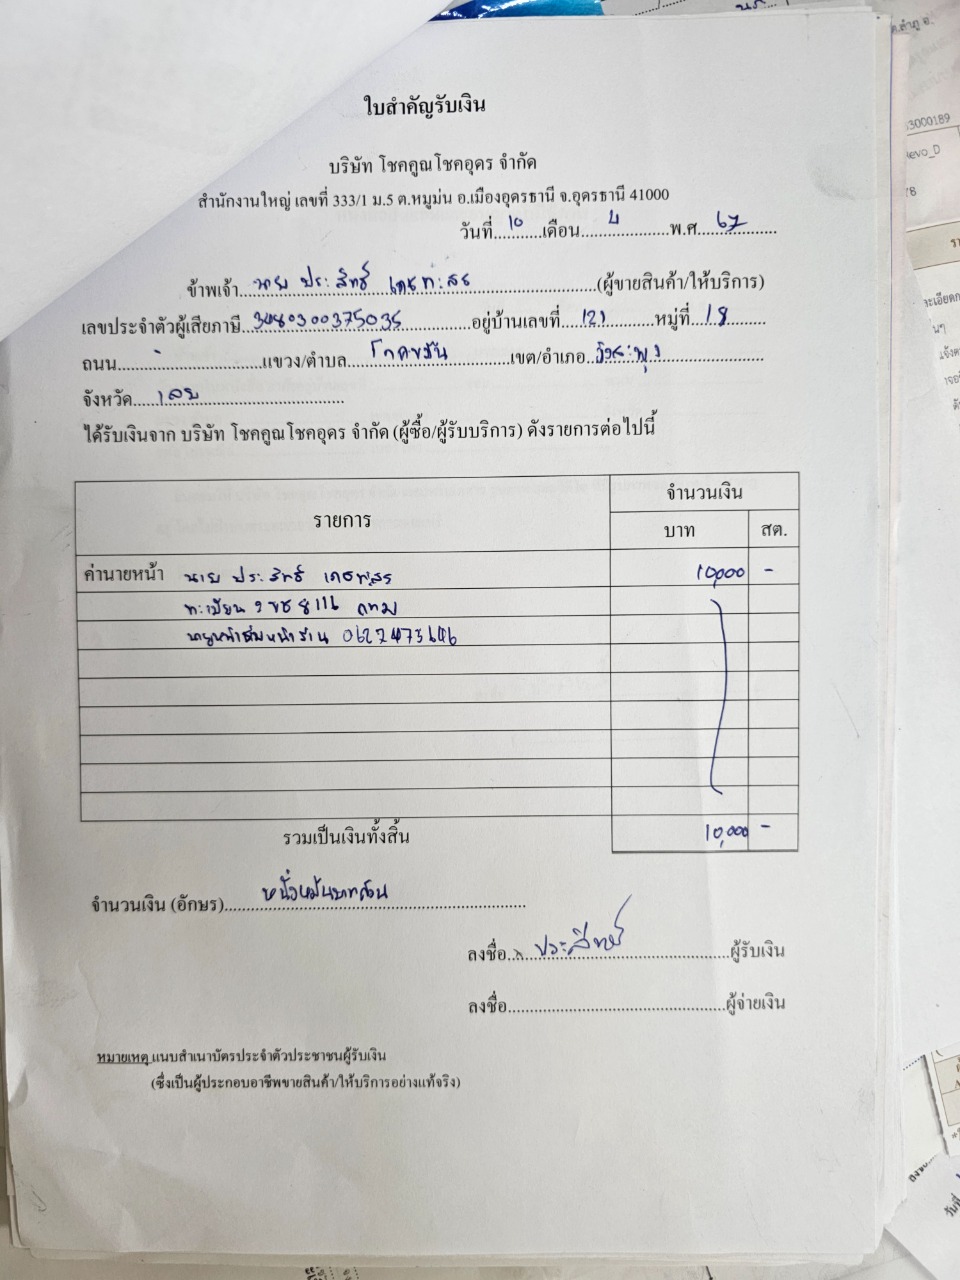 ใบสำคัญรับเงิน
บริษัท โชคคูณโชคอุดร จำกัด
สำนักงานใหญ่ เลขที่ 333/1 ม.5 ต.หมูม่น อ.เมืองอุดรธานี จ.อุดรธานี 41000
วันที่ 10 เดือน 4 พ.ศ. 67
ข้าพเจ้า นาย ประสิทธิ์ (ผู้ขายสินค้า/ให้บริการ)
เลขประจำตัวผู้เสียภาษี อยู่บ้านเลขที่ 121 หมู่ที่ 18
ถนน - แขวง/ตำบล โคกขมิ้น เขต/อำเภอ วังสะพุง
จังหวัด เลย
ได้รับเงินจาก บริษัท โชคคูณโชคอุดร จำกัด (ผู้ซื้อ/ผู้รับบริการ) ดังรายการต่อไปนี้
รายการ จำนวนเงิน
บาท สต.
ค่านายหน้า นาย ประสิทธิ์ 10,000 -
ทะเบียน กทม
0622473646
รวมเป็นเงินทั้งสิ้น 10,000 -
จำนวนเงิน (อักษร) หนึ่งหมื่นบาทถ้วน
ลงชื่อ ประสิทธิ์ ผู้รับเงิน
ลงชื่อ ผู้จ่ายเงิน
หมายเหตุ แนบสำเนาบัตรประจำตัวประชาชนผู้รับเงิน
(ซึ่งเป็นผู้ประกอบอาชีพขายสินค้า/ให้บริการอย่างแท้จริง)